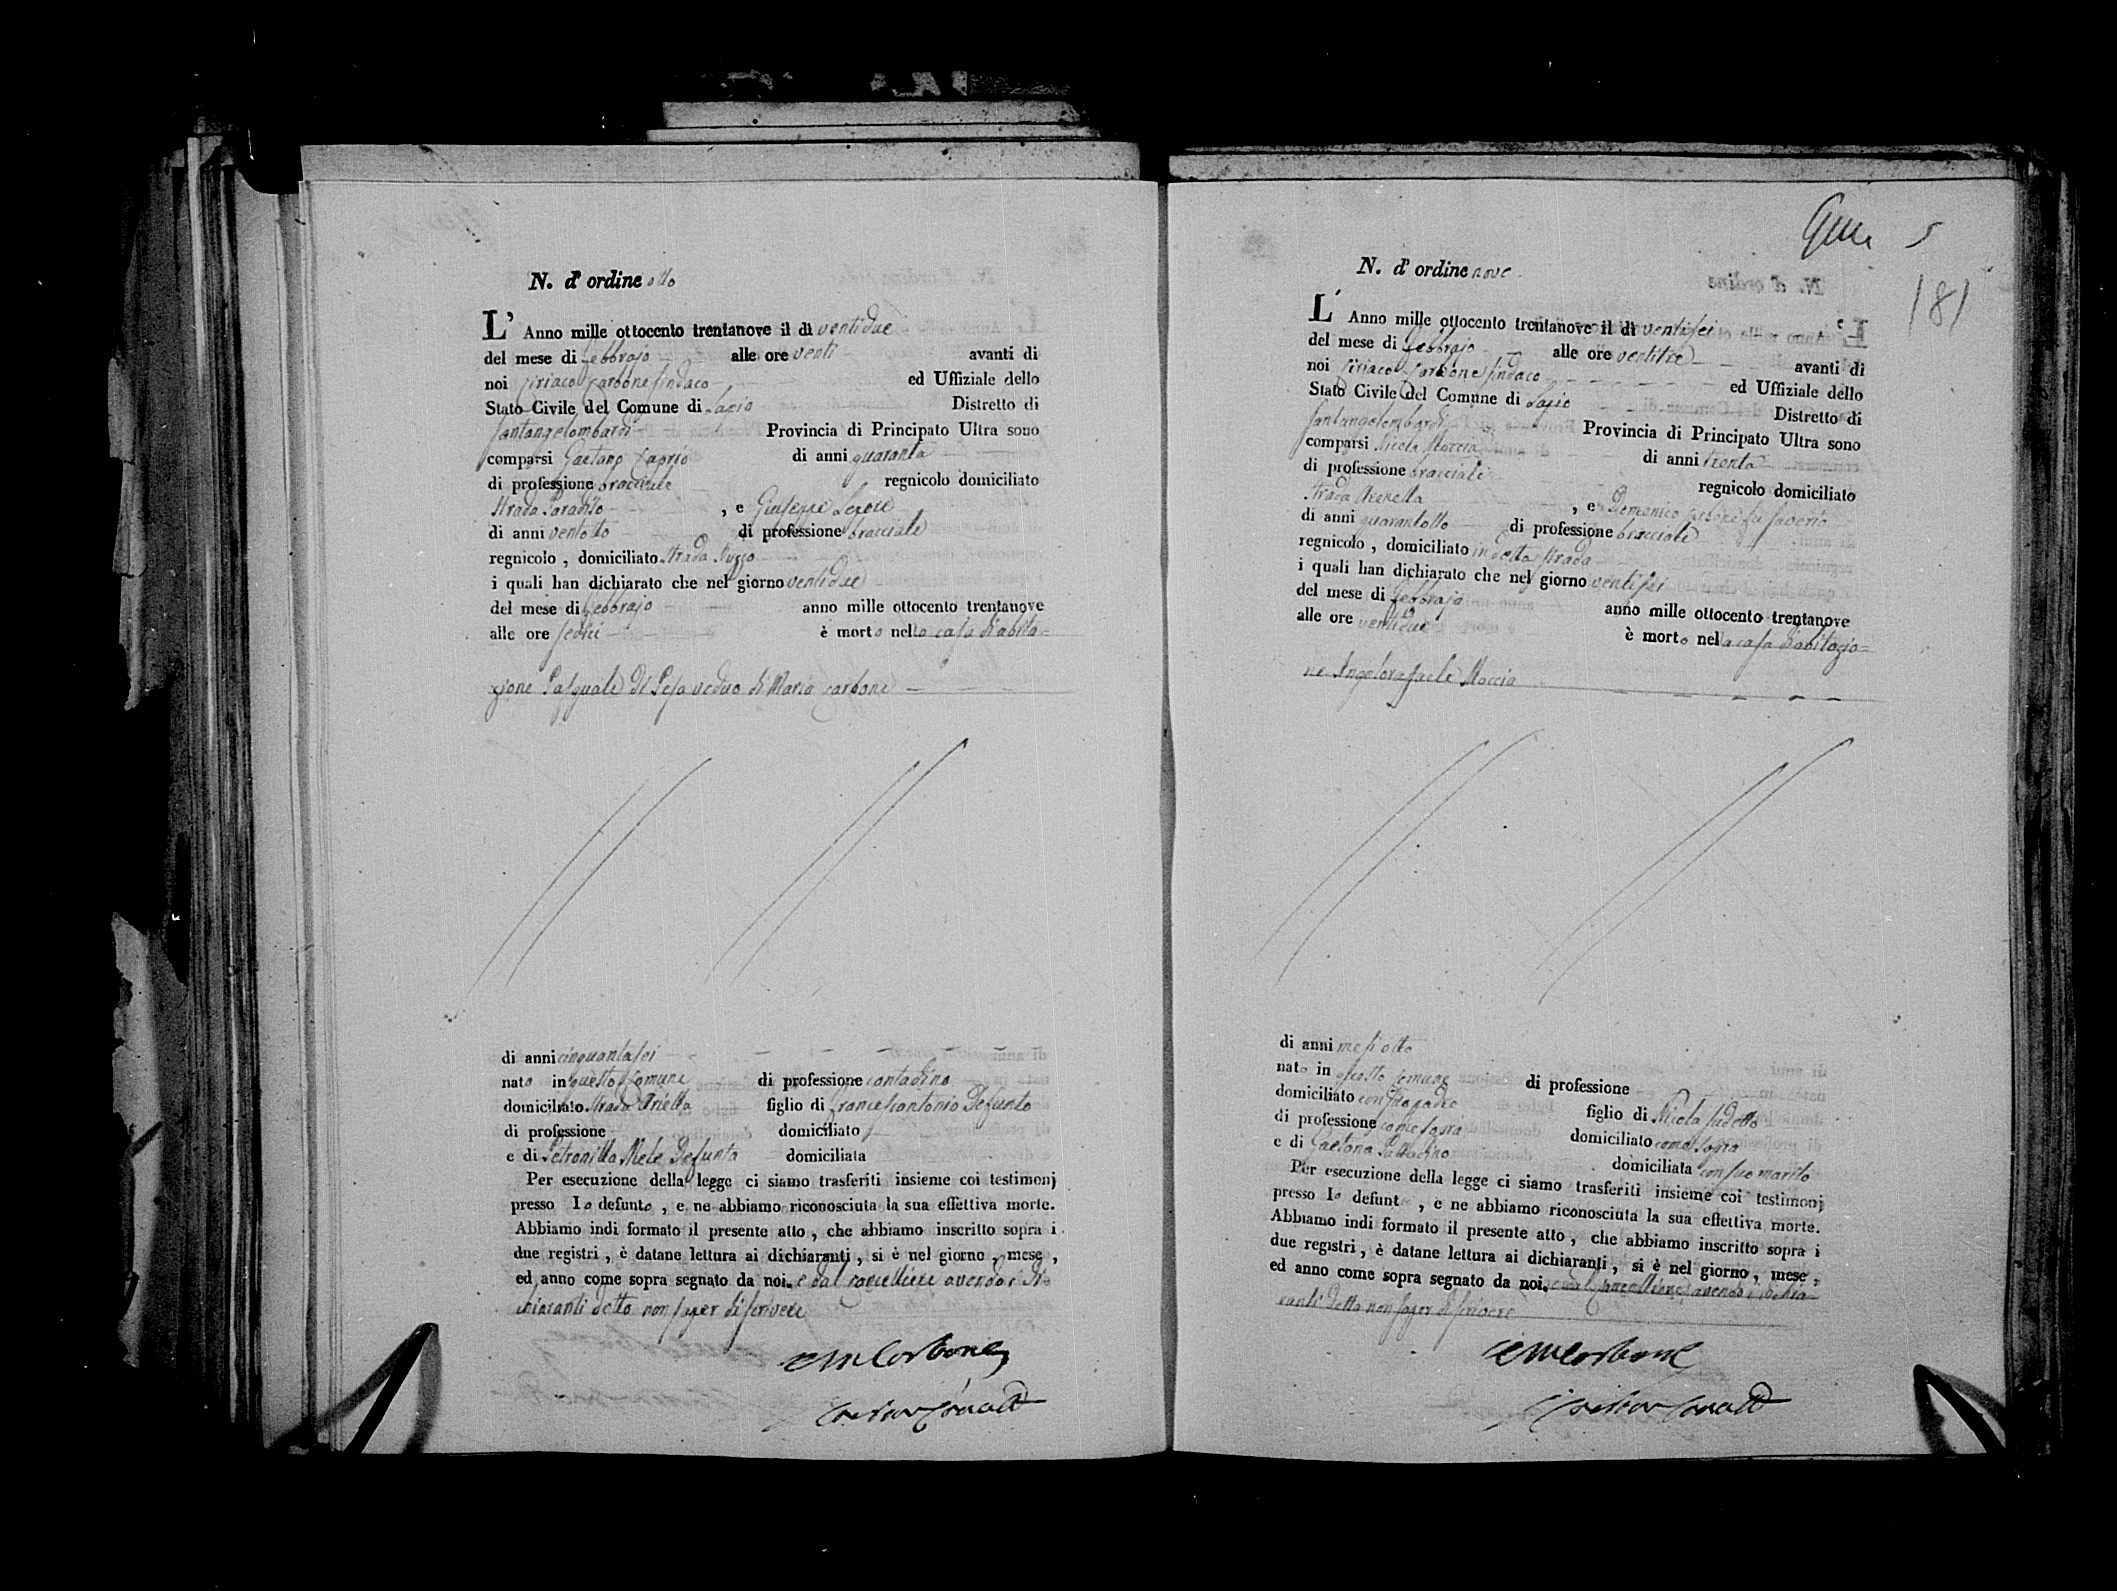 N. d'ordine otto
L'Anno mille ottocento trentanove il dì ventidue
del mese di Febbrajo alle ore venti avanti di
noi Ciriaco Carbone Sindaco ed Uffiziale dello
Stato Civile del Comune di Distretto di
Santangelombardi Provincia di Principato Ultra sono
comparsi Gaetano Caprio di anni quaranta
di professione bracciale regnicolo domiciliato
strada , e Giuseppe
di anni ventotto di professione bracciale
regnicolo , domiciliato strada
i quali han dichiarato che nel giorno ventidue
del mese di Febbrajo anno mille ottocento trentanove
alle ore sedici è morto nella casa d'abita=
zione Pasquale vedovo di Maria Carbone
di anni cinquantasei
nato in questo Comune di professione contadino
domiciliato strada figlio di Francescantonio Defunto
di professione domiciliato
e di Petronilla Mele Defunta domiciliata
Per esecuzione della legge ci siamo trasferiti insieme coi testimonj
presso lo defunto , e ne abbiamo riconosciuta la sua effettiva morte.
Abbiamo indi formato il presente atto , che abbiamo inscritto sopra i
due registri , è datane lettura ai dichiaranti , si è nel giorno , mese ,
ed anno come sopra segnato da noi. e dal Cancelliere avendo i di=
chiaranti detto non saper di scrivere
Carbone
5
181
N. d'ordine nove
L'Anno mille ottocento trentanove il dì ventisei
del mese di Febbrajo alle ore ventitre avanti di
noi Ciriaco Carbone Sindaco ed Uffiziale dello
Stato Civile del Comune di Distretto di
Santangelombardi Provincia di Principato Ultra sono
comparsi Nicola Moccia di anni trenta
di professione bracciale regnicolo domiciliato
strada , e Domenico Carbone fu Saverio
di anni quarantotto di professione bracciale
regnicolo , domiciliato in detta strada
i quali han dichiarato che nel giorno ventisei
del mese di Febbrajo anno mille ottocento trentanove
alle ore ventidue è morto nella casa d'abitazio=
ne Angelorafaele Moccia
di anni mesi otto
nato in questo Comune di professione
domiciliato con suo padre figlio di Nicola sudetto
di professione come sopra domiciliato come sopra
e di Gaetana domiciliata con suo marito
Per esecuzione della legge ci siamo trasferiti insieme coi testimonj
presso lo defunt , e ne abbiamo riconosciuta la sua effettiva morte.
Abbiamo indi formato il presente atto , che abbiamo inscritto sopra i
due registri , è datane lettura ai dichiaranti , si è nel giorno , mese ,
ed anno come sopra segnato da noi. e dal Cancelliere avendo i dichia=
ranti detto non saper di scrivere
Carbone